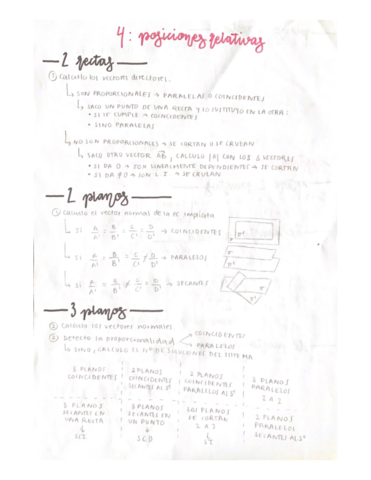 4: posiciones relativas
2 rectas
① Calculo los vectores directores.
↳ SON PROPORCIONALES → PARALELAS O COINCIDENTES
↳ SACO UN PUNTO DE UNA RECTA Y LO SUSTITUYO EN LA OTRA:
• SI SE CUMPLE → COINCIDENTES
• SINO PARALELAS
↳ NO SON PROPORCIONALES → SE CORTAN O SE CRUZAN
↳ SACO OTRO VECTOR AB, CALCULO |A| CON LOS 3 VECTORES
• SI DA 0 → SON LINEALMENTE DEPENDIENTES → SE CORTAN
• SI DA ≠ 0 → SON L.I. → SE CRUZAN
2 planos
① Calculo el vector normal de la ec implícita
↳ Si A/A' = B/B' = C/C' = D/D' → COINCIDENTES
↳ Si A/A' = B/B' = C/C' ≠ D/D' → PARALELOS
↳ Si A/A' = B/B' ≠ C/C' = D/D' → SECANTES
3 planos
① Calculo los vectores normales
② Detecto la proporcionalidad
COINCIDENTES
PARALELOS
↳ SINO, CALCULO EL Nº DE SOLUCIONES DEL SISTEMA
3 PLANOS COINCIDENTES
2 PLANOS COINCIDENTES SECANTES AL 3º
2 PLANOS COINCIDENTES PARALELOS AL 3º
3 PLANOS PARALELOS 2 A 2
3 PLANOS SECANTES EN UNA RECTA
↓
SCI
3 PLANOS SECANTES EN UN PUNTO
↓
SCD
LOS PLANOS SE CORTAN 2 A 2
↓
SI
2 PLANOS PARALELOS SECANTES AL 3º